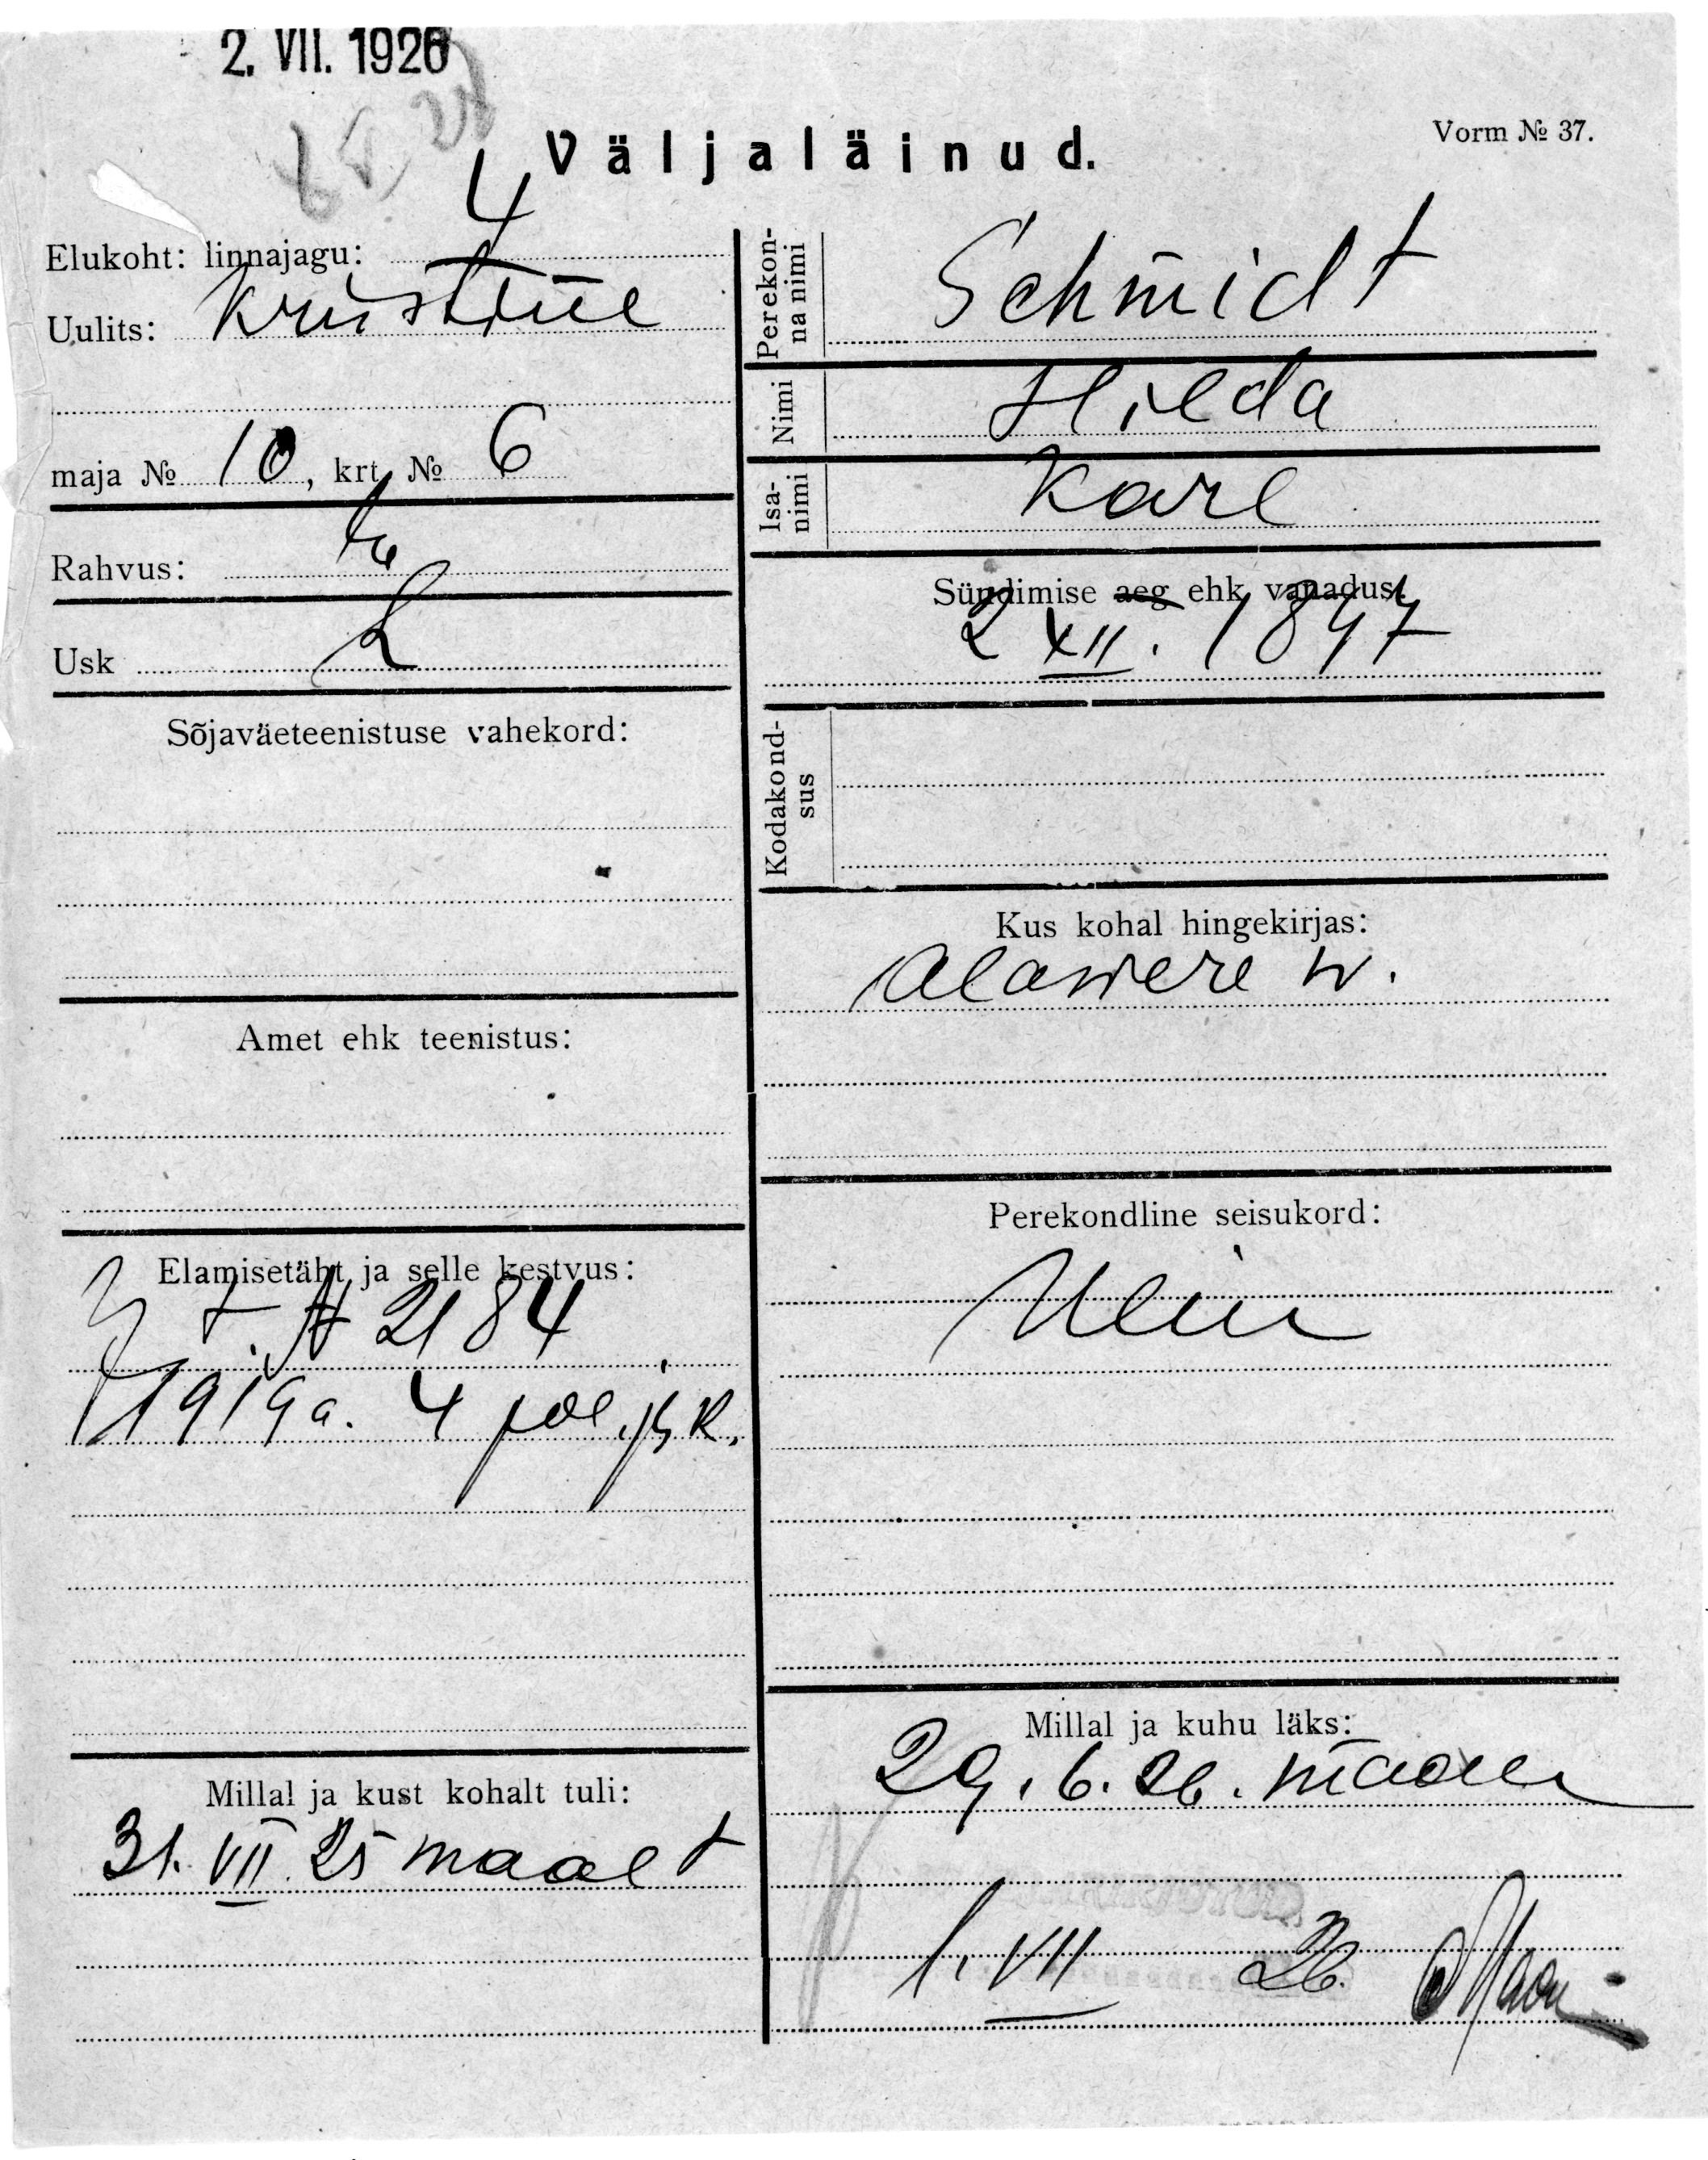 2. VII. 1926
Väljaläinud.
Vorm № 37.
Elukoht: linnajagu: 4
Uulits: Kristiine
maja № 10, krt. № 6
Rahvus: E
Usk L
Sõjaväeteenistuse vahekord:
Amet ehk teenistus:
Elamisetäht ja selle kestvus:
t. № 2184
1919 a. 4 pol. jsk.
Millal ja kust kohalt tuli:
31. VII. 25 maalt
Perekonna nimi
Schmidt
Nimi
Hilda
Isanimi
Karl
Sündimise aeg ehk vanadus:
2 XII. 1897
Kodakondsus
Kus kohal hingekirjas:
Alawere w.
Perekondline seisukord:
Millal ja kuhu läks:
29. 6. 26. maale
1. VII 26.